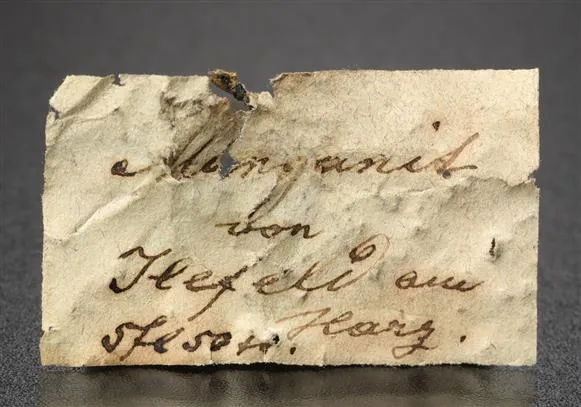 Manganit
von
Ilefeld am
Harz.